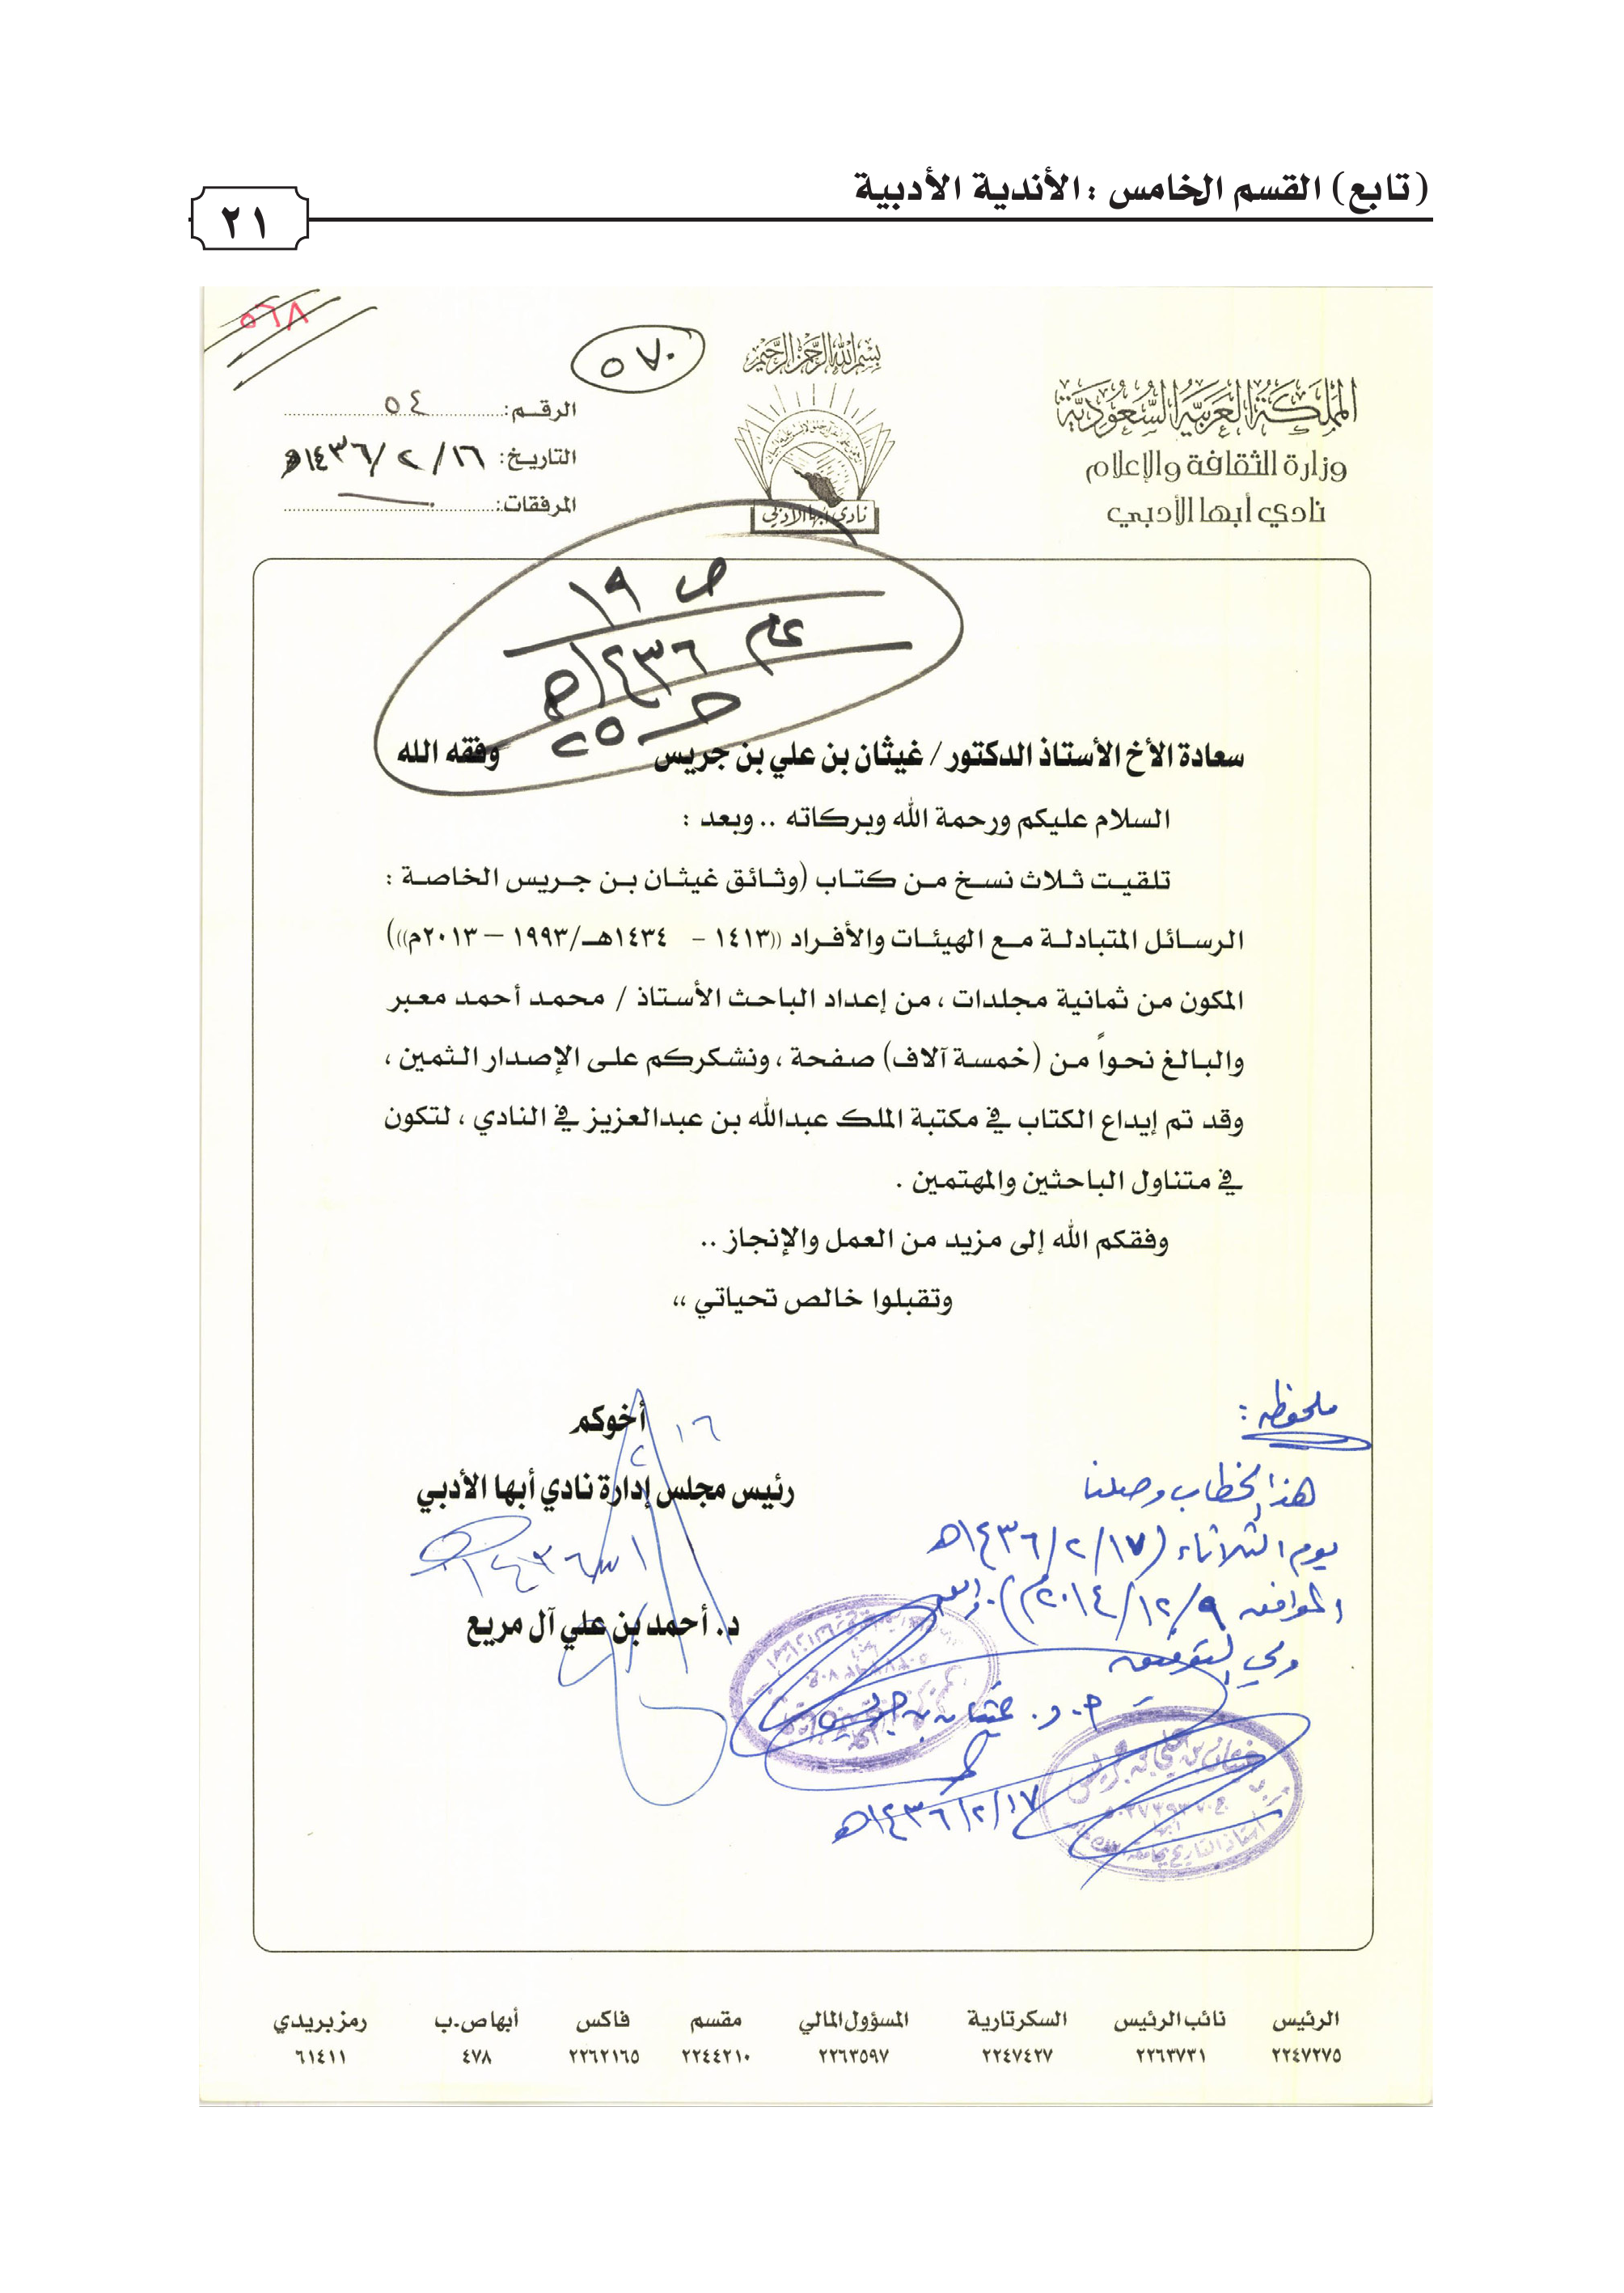 (تابع) القسم الخامس : الأندية الأدبية
٢١
٥٦٨
٥٧٠
بسم الله الرحمن الرحيم
المملكة العربية السعودية
وزارة الثقافة والإعلام
نادي أبها الأدبي
نادي أبها الأدبي
الرقم: ٥٤
التاريخ: ١٦/ ٢ /١٤٣٦هـ
المرفقات:
ص ١٩
عام ١٤٣٦هـ
حـ ٢٥
سعادة الأخ الأستاذ الدكتور/ غيثان بن علي بن جريس وفقه الله
السلام عليكم ورحمة الله وبركاته .. وبعد :
تلقيت ثلاث نسخ من كتاب (وثائق غيثان بن جريس الخاصة :
الرسائل المتبادلة مع الهيئات والأفراد ((١٤١٣ - ١٤٣٤هـ/١٩٩٣ – ٢٠١٣م)))
المكون من ثمانية مجلدات ، من إعداد الباحث الأستاذ / محمد أحمد معبر
والبالغ نحواً من (خمسة آلاف) صفحة ، ونشكركم على الإصدار الثمين ،
وقد تم إيداع الكتاب في مكتبة الملك عبدالله بن عبدالعزيز في النادي ، لتكون
في متناول الباحثين والمهتمين .
وفقكم الله إلى مزيد من العمل والإنجاز ..
وتقبلوا خالص تحياتي ،،
أخوكم
رئيس مجلس إدارة نادي أبها الأدبي
د. أحمد بن علي آل مريع
ملحوظة :
هذا الخطاب وصلنا
يوم الثلاثاء (١٧/ ٢/ ١٤٣٦هـ
الموافق ٩/ ١٢/ ٢٠١٤م). والله
ولي التوفيق
أ. د. غيثان بن جريس
١٧/ ٢/ ١٤٣٦هـ
الرئيس نائب الرئيس السكرتارية المسؤول المالي مقسم فاكس أبها ص.ب رمز بريدي
٢٢٤٧٢٧٥ ٢٢٦٣٧٣١ ٢٢٤٧٤٢٧ ٢٢٦٣٥٩٧ ٢٢٤٤٢١٠ ٢٢٦٢١٦٥ ٤٧٨ ٦١٤١١